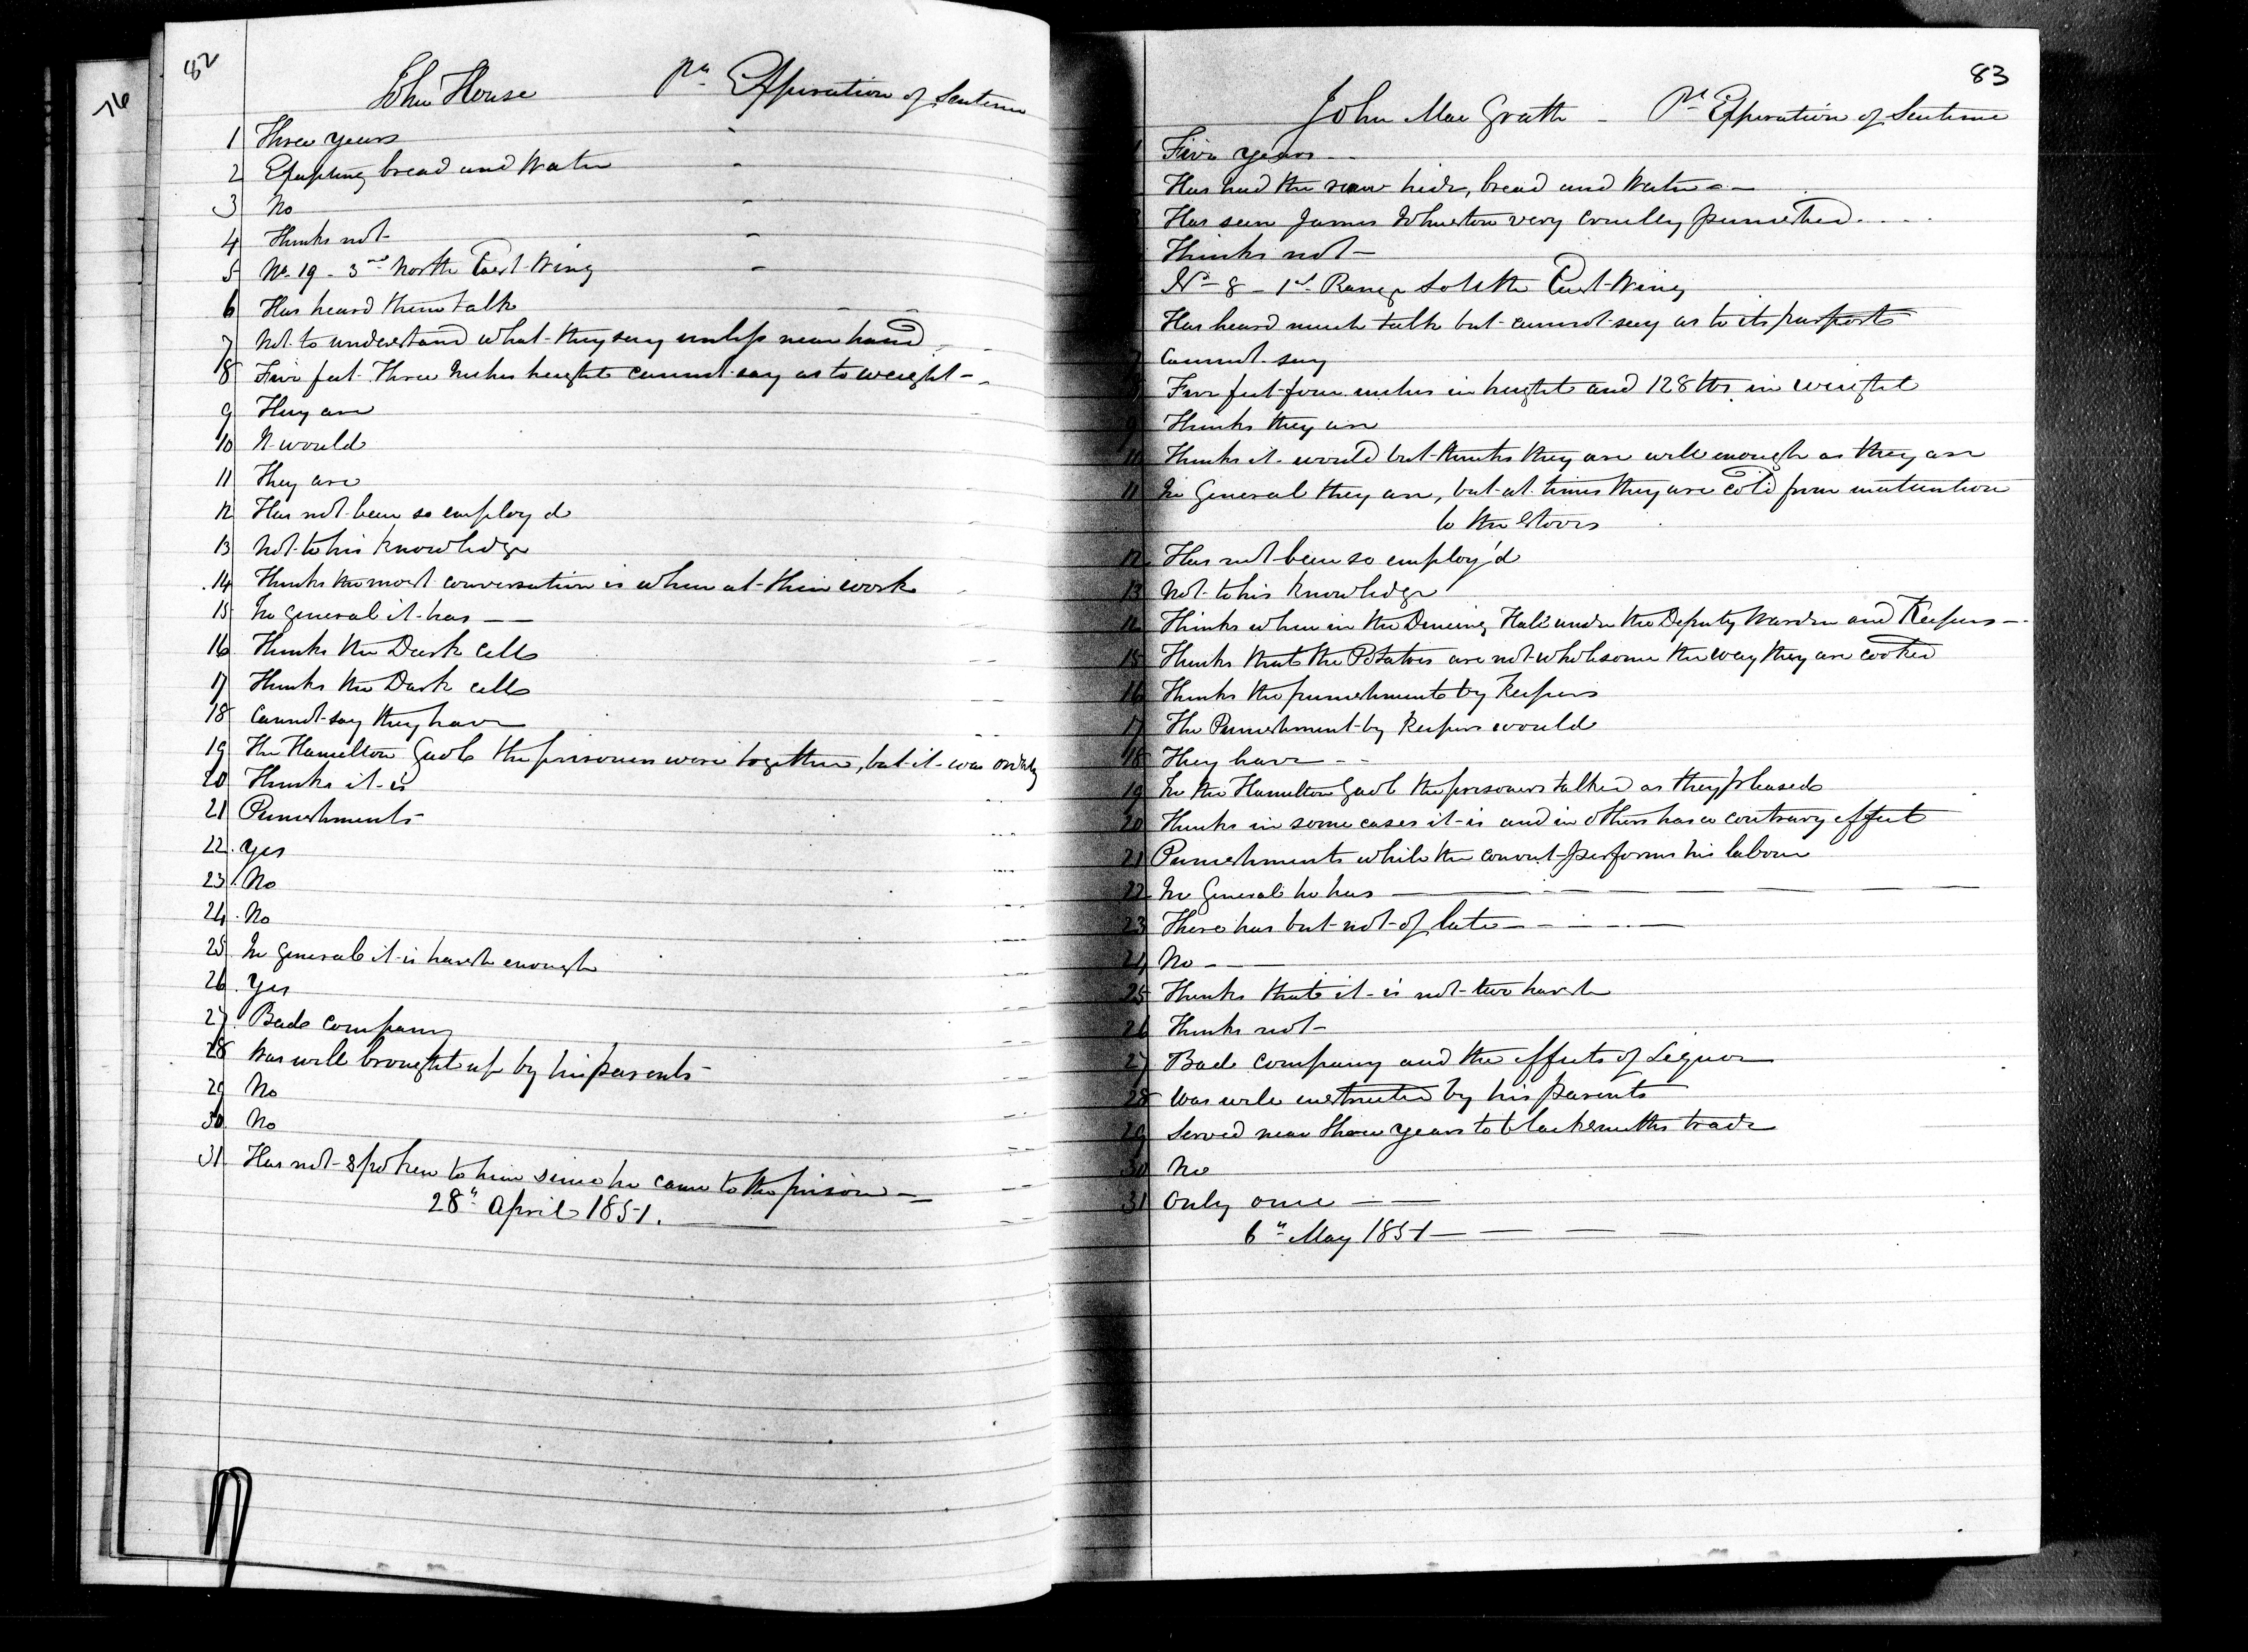 76
82
John House Pr Expiration of Sentence
1 Three years
2 Excepting bread and Water
3 No
4 Thinks not
5 No 19 - 3rd North East Wing
6 Has heard them talk
7 Not to understand what they say unless near hand
8 Five feet Three Inches height cannot say as to weight -
9 They are
10 It would
11 They are
12 Has not been so employ'd
13 Not to his knowledge
14 Thinks the most conversation is when at their work
15 In General it has
16 Thinks the Dark Cells
17 Thinks the Dark cells
18 Cannot say they have
19 The Hamilton Gaol the prisoners were together, but it was orderly
20 Thinks it is
21 Punishments
22 Yes
23 No
24 No
25 In General it is harsh enough
26 Yes
27 Bad company
28 Was well brought up by his parents
29 No
30 No
31 Has not spoken to him since he came to the prison
28th April 1851.
83
John Mac Grath - Pr Expiration of Sentence
Five years
Has had the raw hide, bread and Water
Has seen James Johnston very cruelly punished
Thinks not
No 8 - 1st Range South East Wing
Has heard much talk but cannot say as to its purport
7 Cannot say
Five feet four inches in height and 128 lbs. in weight
9 Thinks they are
10 Thinks it would but thinks they are well enough as they are
11 In General they are, but at times they are cold from inattention
to the stoves
12 Has not been so employ'd
13 Not to his knowledge
14 Thinks when in the Dineing Hall under the Deputy Warden and Keepers
15 Thinks that the Potatoes are not wholesome the way they are cooked
16 Thinks the punishments by Keepers
17 The Punishment by Keepers would
18 They have
19 In the Hamilton Gaol the prisoners talked as they pleased
20 Thinks in some cases it is and in others has a contrary effect
21 Punishments while the convict performs his labour
22 In General he has
23 There has but not of late
24 No
25 Thinks that it is not two harsh
26 Thinks not
27 Bad company and the effects of Liquor
28 Was well instructed by his parents
29 Served near three years to blacksmiths trade
30 No
31 Only once
6th May 1851